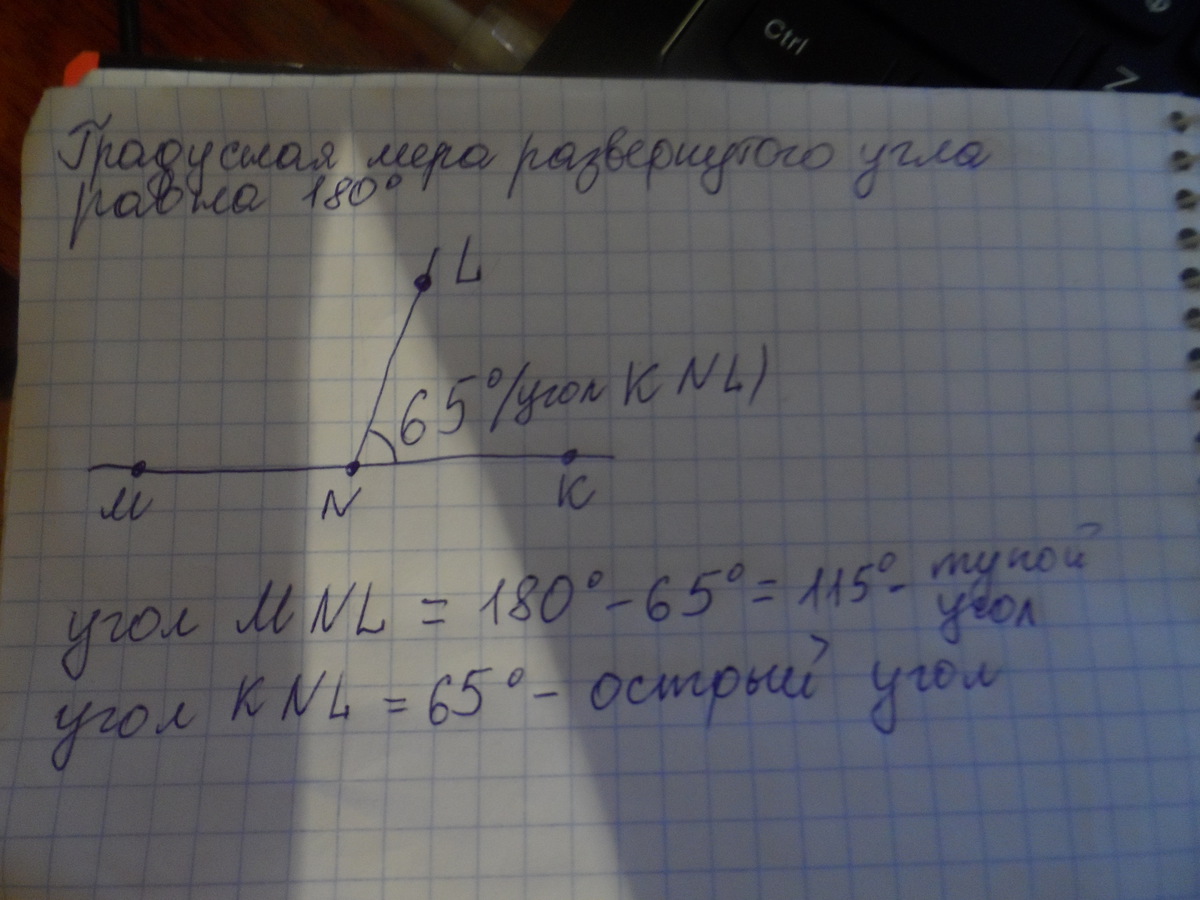 Ctrl
Z
Градусная мера развернутого угла
равна 180°
L
65° (угол KNL)
M N K
угол MNL = 180° - 65° = 115° - тупой
угол
угол KNL = 65° - острый угол